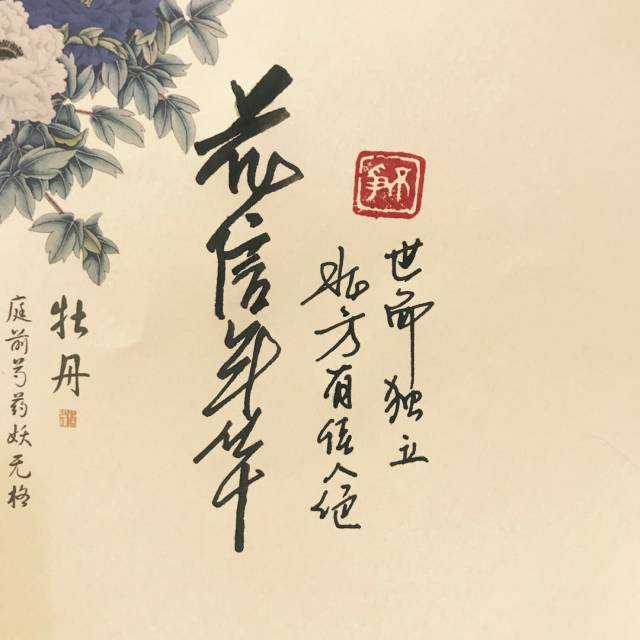 花信年华
北方有佳人绝
世而独立
不争
牡丹
庭前芍药妖无格